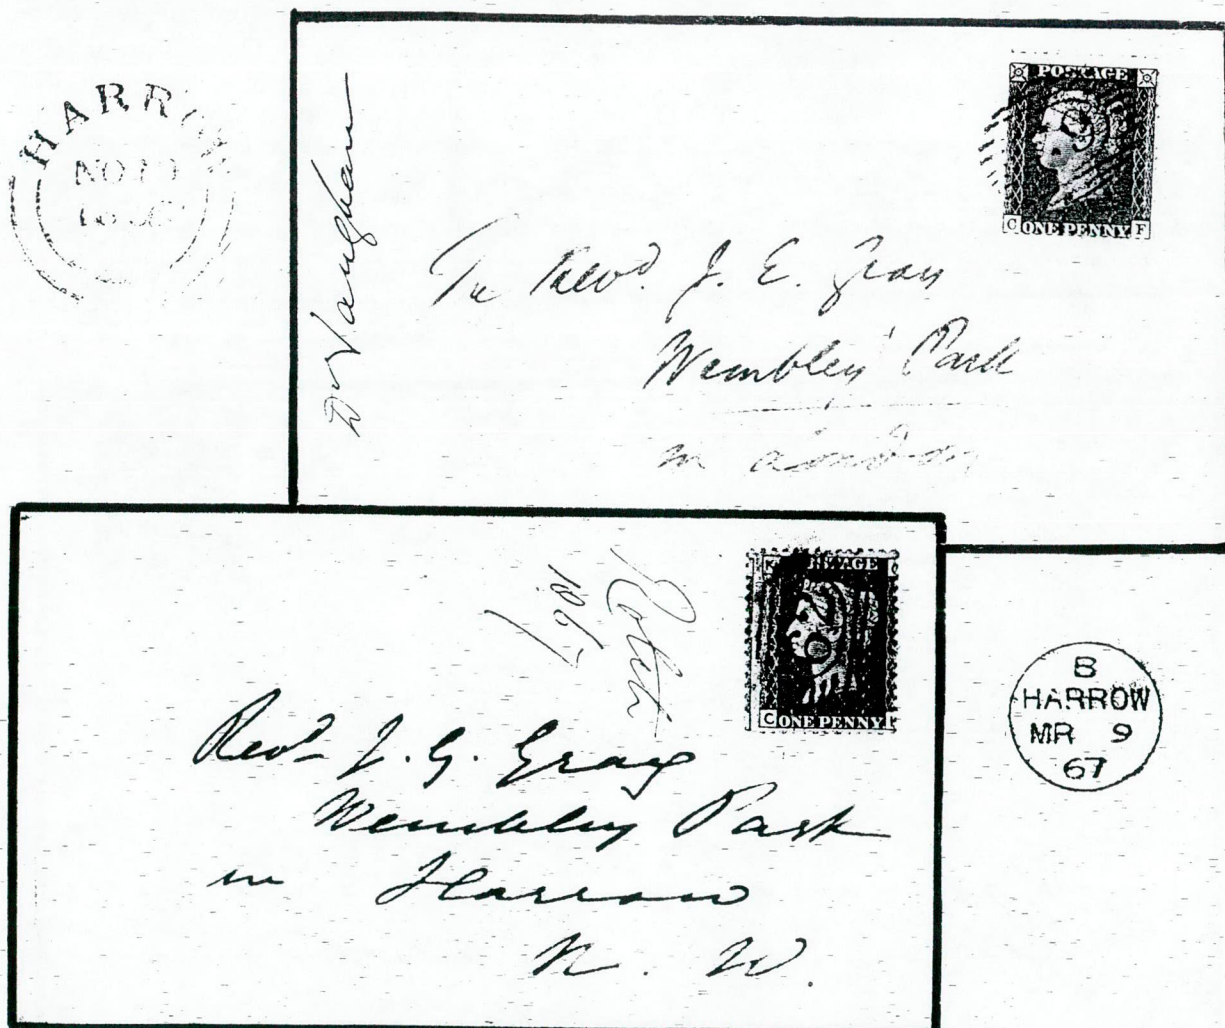 HARROW
NO 10
Dr Vaughan
POSTAGE
C ONE PENNY F
The Revd. J. E. Gray
Wembley Park
London
Robin
1867
POSTAGE
C ONE PENNY
Revd J. G. Gray
Wembley Park
nr Harrow
N. W.
B
HARROW
MR 9
67